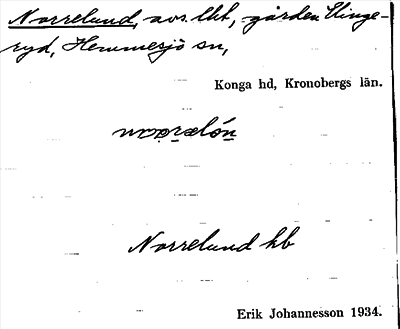 Norrelund, avs. lht, gården Slinge-
ryd, Hemmesjö sn,
Konga hd, Kronobergs län.
Norrelund hb
Erik Johannesson 1934.